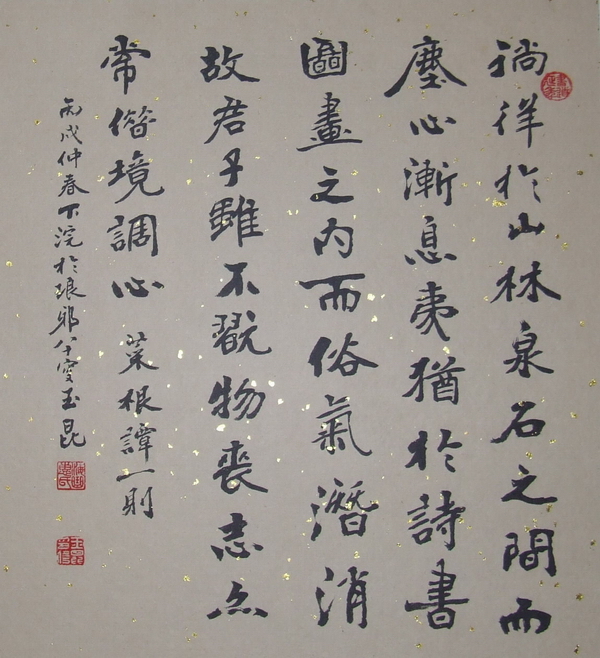 徜徉於山林泉石之間而
塵心漸息夷猶於詩書
圖畫之內而俗氣潛消
故君子雖不翫物喪志亦
常借境調心 菜根譚一則
丙戌仲春下浣於琅邪八十叟玉昆